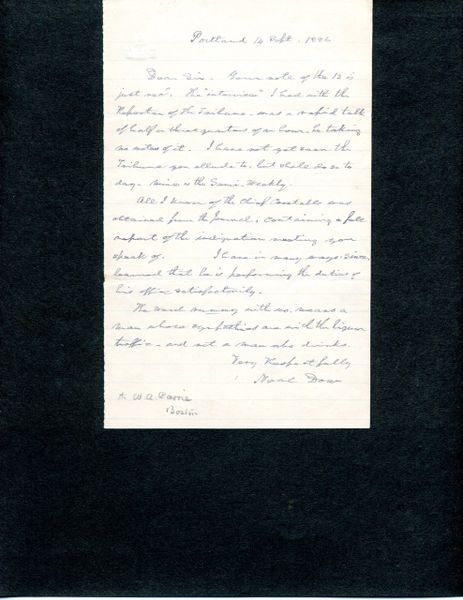 Portland 14 Sept. 18
Dear Sir. Your note of the 13 is
just rec'd. The "interview" I had with the
Reporter of the Tribune was a rapid talk
of half or three quarters of an hour, he taking
no notes of it. I have not yet seen the
Tribune you allude to, but shall do so to
day. Mine is the Semi-Weekly.
All I know of the Chief Constable was
obtained from the Journal, containing a full
report of the indignation meeting you
speak of. I have in many ways since
learned that he is performing the duties of
his office satisfactorily.
The word with us, means a
man whose sympathies are with the liquor
traffic - and not a man who drinks.
Very Respectfully
Neal Dow
W. A.
Boston